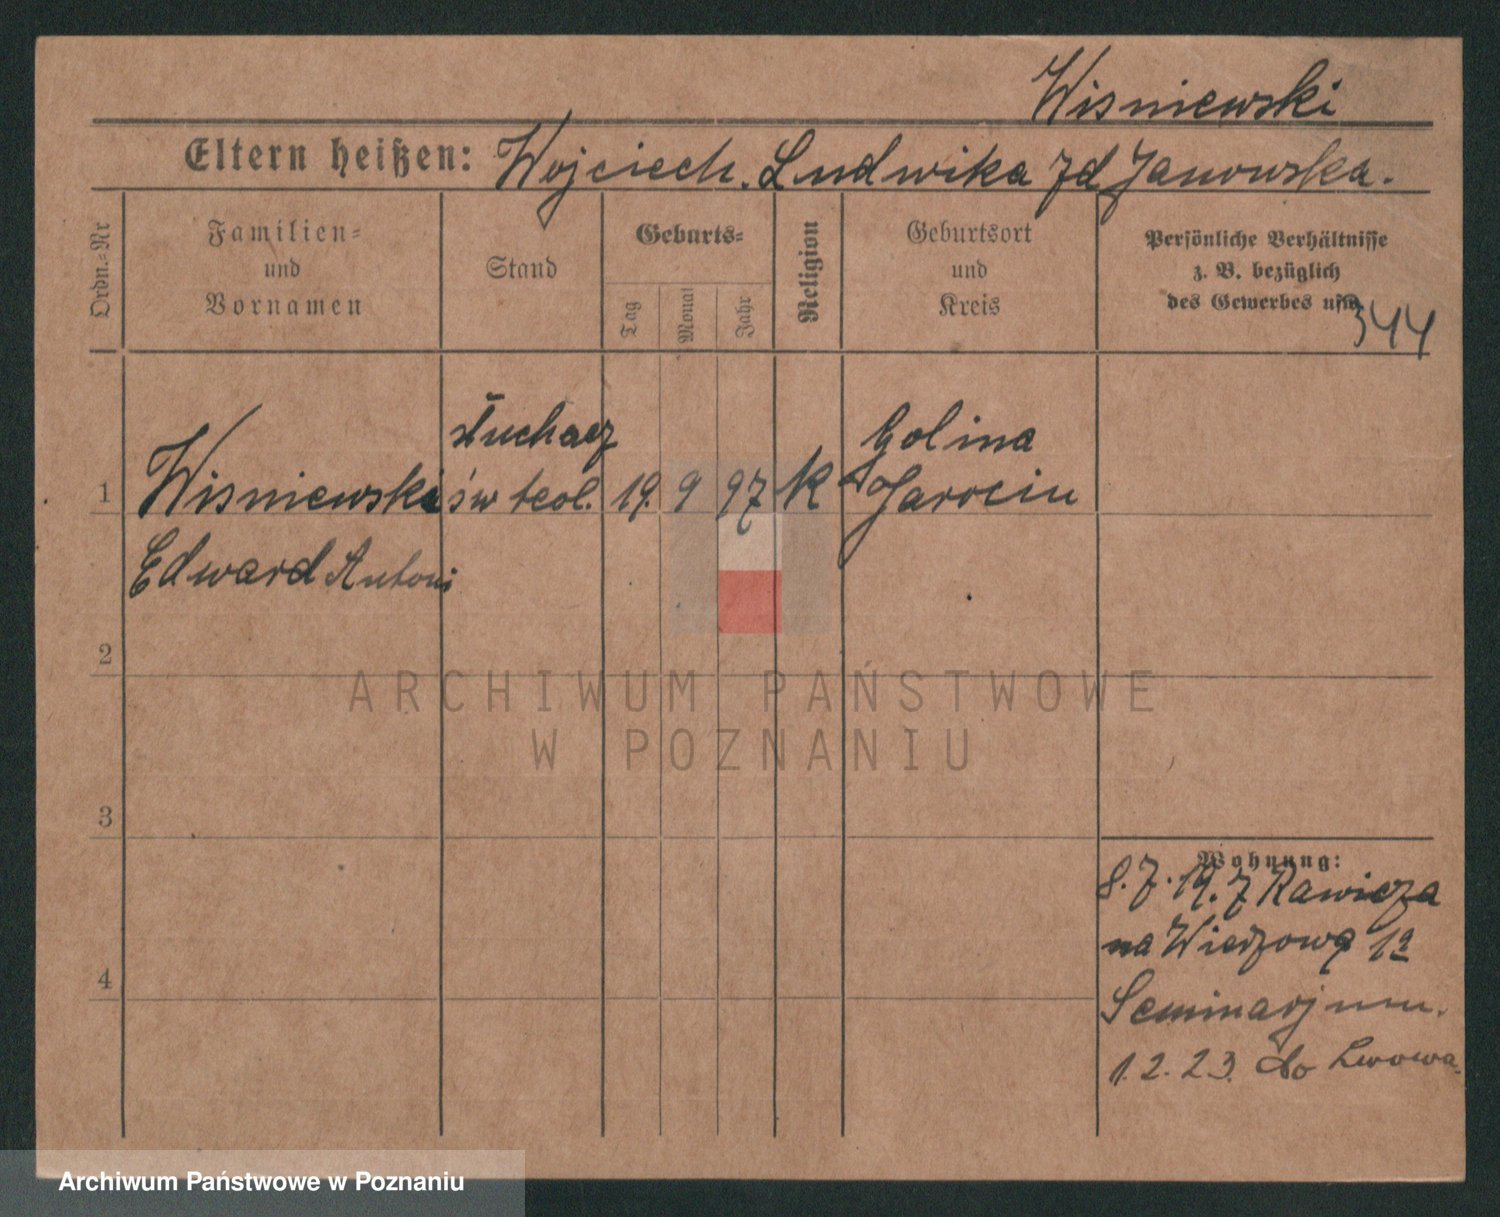 Wisniewski
Eltern heißen: Wojciech. Ludwika zd Janowska.
Ordn.-Nr
Familien-
und
Vornamen
Stand
Geburts-
Tag
Monat
Jahr
Religion
Geburtsort
und
Kreis
Persönliche Verhältnisse
z. B. bezüglich
des Gewerbes usw.
344
słuchacz
Golina
1 Wisniewski św teol. 19. 9 97 K Jarocin
Edward Antoni
2
ARCHIWUM PAŃSTWOWE
W POZNANIU
3
Wohnung:
8.7.19. z Rawicza
na Wieżową 1a
4
Seminarjum.
1.2.23. do Lwowa.
Archiwum Państwowe w Poznaniu